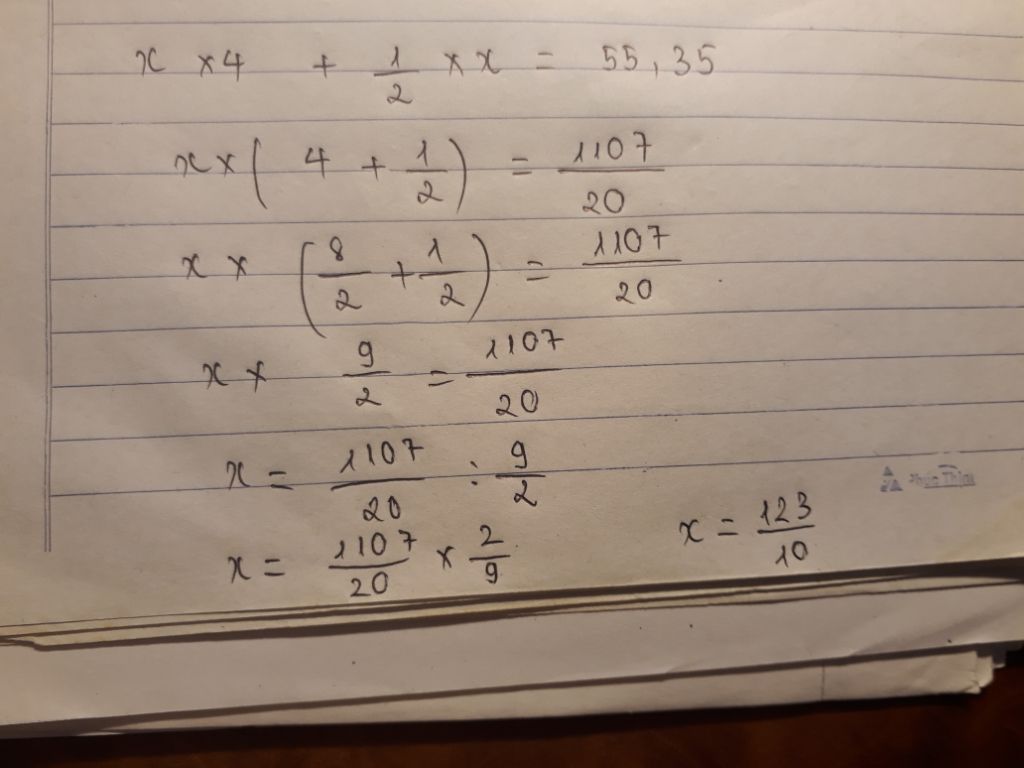 x × 4 + 1/2 × x = 55,35
x × ( 4 + 1/2 ) = 1107/20
x × ( 8/2 + 1/2 ) = 1107/20
x × 9/2 = 1107/20
x = 1107/20 : 9/2
x = 1107/20 × 2/9
x = 123/10